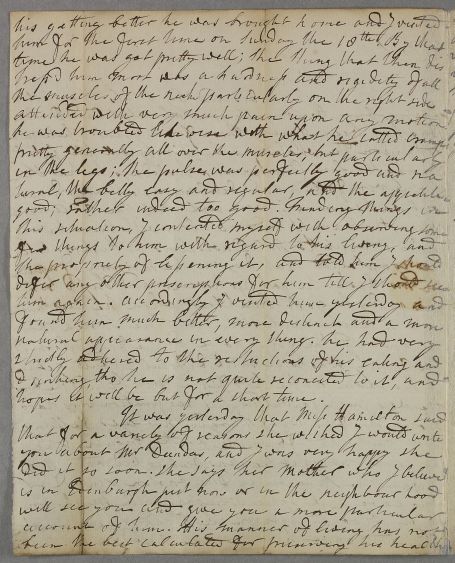 his getting better he was brought home and I visited
him for the first time on Sunday the 18th. By that
time he was got pretty well; the thing that then dis
tress'd him most was a hardness and rigidity of all
the muscles of the neck particularly on the right side
attended with very much pain upon any motion
he was troubled likewise with what he called cramps
pretty generally all over the muscles, but particularly
in the legs; the pulse was perfectly good and na
tural, the belly easy and regular, and the appetite
good, rather indeed too good. Finding things in
this situation, I contented myself with observing some
few things to him with regard to his living, and
the propriety of lessening it, and told him I should
defer any other prescriptions for him till I should see
him again. accordingly I visited him yesterday and
found him much better, more distinct and a more
natural appearance in every thing. he had very
strictly adhered to the restrictions of his eating and
drinking tho' he is not quite reconciled to it and
hopes it will be but for a short time.
It was yesterday that Miss Hamilton said
that for a variety of reasons she wished I would write
you about Mr Dundas, and I was very happy she
did it so soon. she says her Mother who I believe
is in Edinburgh just now or in the neighbourhood
will see you and give you a more particular
account of him. His manner of living has not
been the best calculated for preserving his health